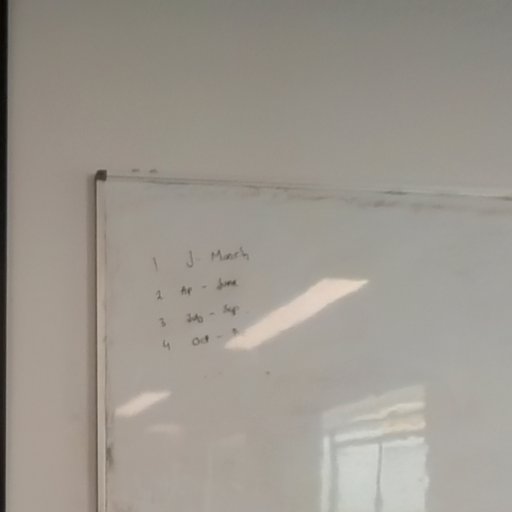 1 J - March
2 Ap - June
3 July - Sep
4 Oct -